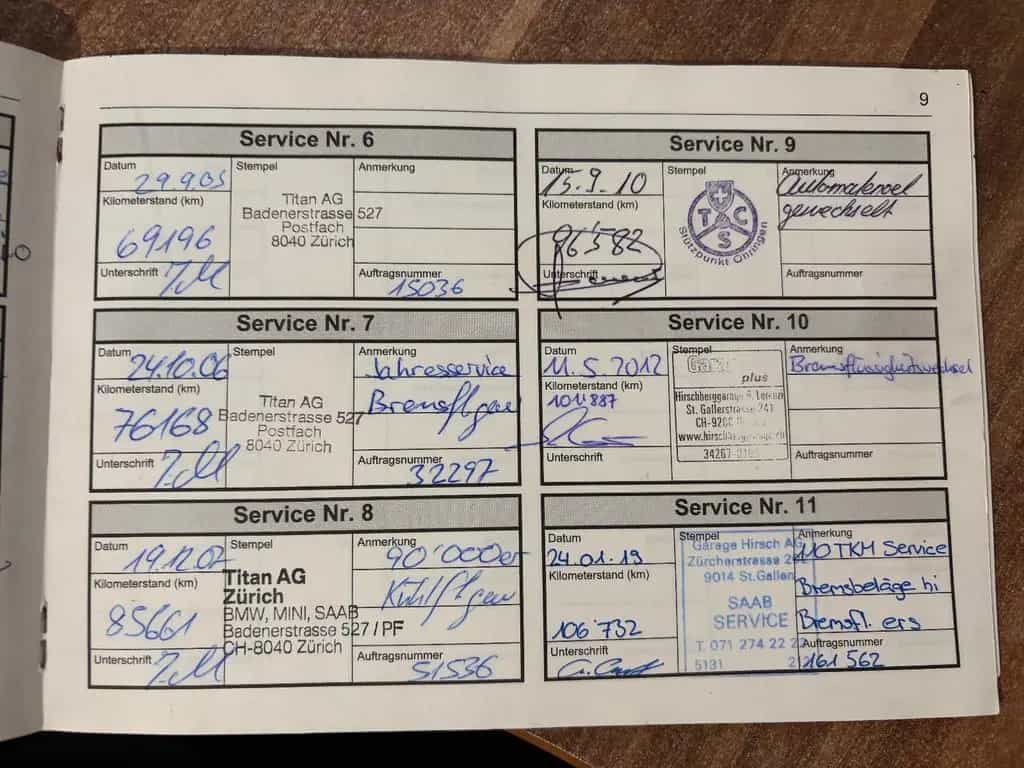 9
Service Nr. 6
Datum
29.9.05
Stempel
Anmerkung
Kilometerstand (km)
69196
Titan AG
Badenerstrasse 527
Postfach
8040 Zürich
Unterschrift
Auftragsnummer
15036
Service Nr. 7
Datum
24.10.06
Stempel
Anmerkung
Jahresservice
Kilometerstand (km)
76168
Titan AG
Badenerstrasse 527
Postfach
8040 Zürich
Bremsfl gew
Unterschrift
Auftragsnummer
32297
Service Nr. 8
Datum
19.12.07
Stempel
Anmerkung
90'000er
Kilometerstand (km)
85661
Titan AG
Zürich
BMW, MINI, SAAB
Badenerstrasse 527 / PF
CH-8040 Zürich
Kühlfl gew
Unterschrift
Auftragsnummer
51536
Service Nr. 9
Datum
15.9.10
Stempel
Anmerkung
Automatenoel
gewechselt
Kilometerstand (km)
96'582
TCS
Stützpunkt Ohringen
Unterschrift
Auftragsnummer
Service Nr. 10
Datum
11.5.2012
Stempel
Anmerkung
Bremsflüssigkeitwechsel
Kilometerstand (km)
101'887
plus
St. Gallerstrasse 241
Unterschrift
Auftragsnummer
Service Nr. 11
Datum
24.01.13
Stempel
Anmerkung
110 TKM Service
Kilometerstand (km)
106'732
Garage Hirsch AG
Zürcherstrasse
9014 St.Gallen
SAAB
SERVICE
T. 071 274 22
5131
Bremsbeläge hi
Bremsfl. ers
Unterschrift
Auftragsnummer
2161 562